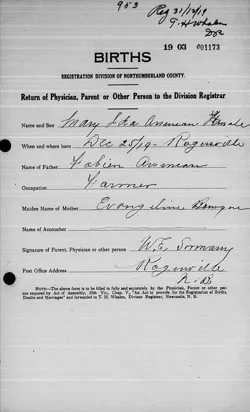 953
Reg 31/12/19
T. H. Whalen
D.R.
1903 001173
BIRTHS
REGISTRATION DIVISION OF NORTHUMBERLAND COUNTY.
Return of Physician, Parent or Other Person to the Division Registrar
Name and Sex Mary Ida Arseneau Female
When and where born Dec 25/19 - Rogersville
Name of Father Fabien Arseneau
Occupation Farmer
Maiden Name of Mother Evangeline
Name of Accoucher
Signature of Parent, Physician or other person W. F.
Post Office Address Rogersville
N. B.
NOTE—The above form is to be filled in fully and separately by the Physician, Parent or other per-
son required by Act of Assembly, 50th Vic., Chap. V., "An Act to provide for the Registration of Births,
Deaths and Marriages" and forwarded to T. H. Whalen, Division Registrar, Newcastle, N. B.